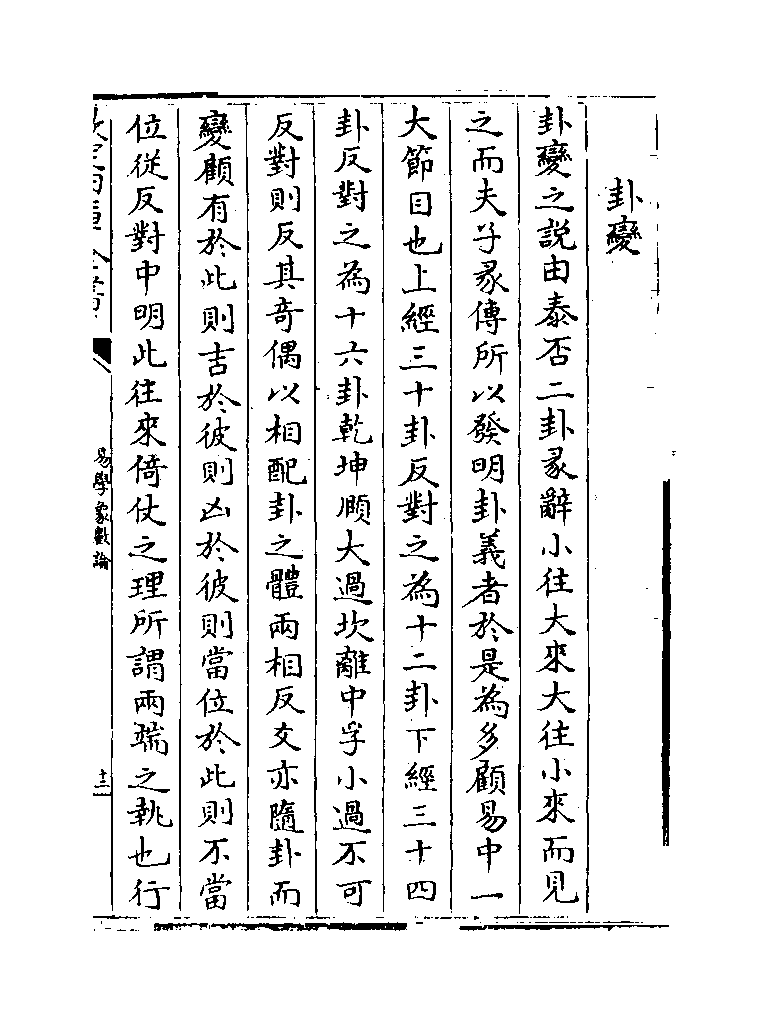 卦變
卦變之説由泰否二卦彖辭小往大來大往小來而見
之而夫子彖傳所以發明卦義者於是為多顧易中一
大節目也上經三十卦反對之為十二卦下經三十四
卦反對之為十六卦乾坤頤大過坎離中孚小過不可
反對則反其奇偶以相配卦之體兩相反爻亦隨卦而
變顧有於此則吉於彼則凶於彼則當位於此則不當
位從反對中明此往來倚伏之理所謂兩端之執也行
易學象數論
十三